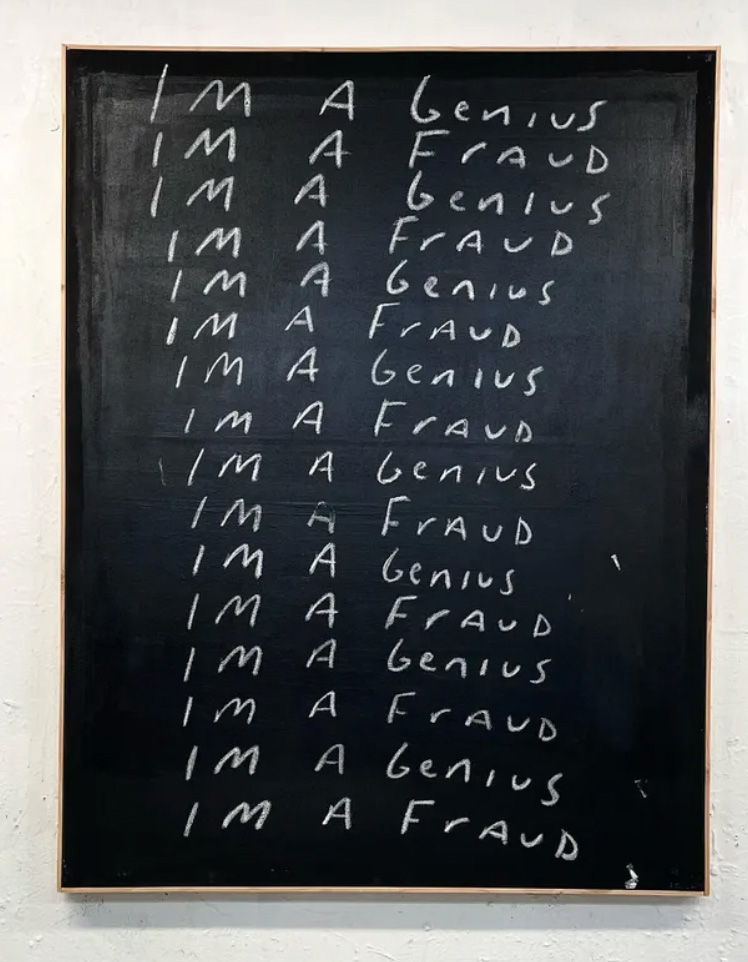 IM A GenIUS
IM A FrAUD
IM A GenIUS
IM A FrAUD
IM A GenIUS
IM A FrAUD
IM A GenIUS
IM A FrAUD
IM A GenIUS
IM A FrAUD
IM A GenIUS
IM A FrAUD
IM A GenIUS
IM A FrAUD
IM A GenIUS
IM A FrAUD